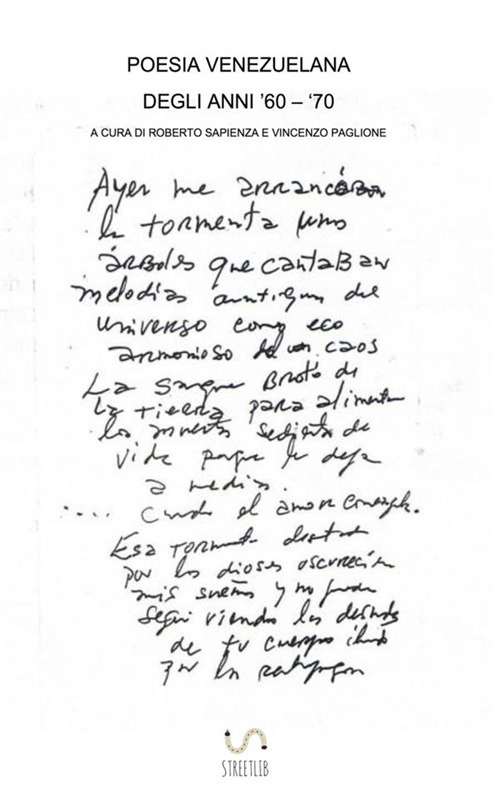 POESIA VENEZUELANA
DEGLI ANNI '60 – '70
A CURA DI ROBERTO SAPIENZA E VINCENZO PAGLIONE
Ayer me
la tormenta unos
árboles que cantaban
melodías antiguas del
universo como eco
armonioso de un caos
La sangre brotó de
la tierra para alimentar
los muertos sedientos de
vida porque le deja
a medias.
..... Cuando el amor
Esa tormenta
por los dioses oscureció
mis sueños y no puedo
seguir viendo los
de tu cuerpo
por la
STREETLIB